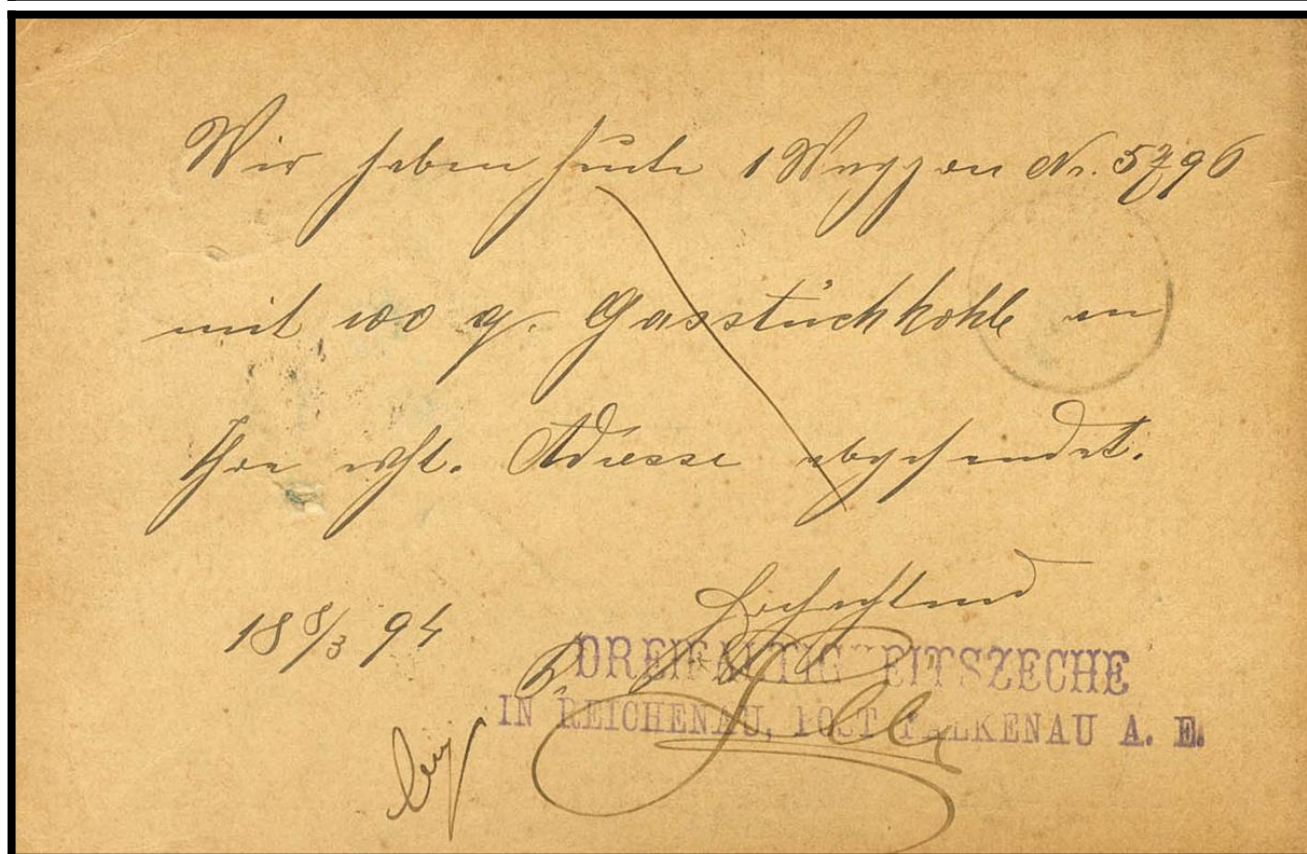 Wir haben heute 1 Waggon Nr. 5796
mit 100 q. Gasstückkohle an
Ihre wht. Adresse abgesendet.
Hochachtend
18 8/3 94
DREIFALTIGKEITSZECHE
IN REICHENAU, POST FALKENAU A. E.